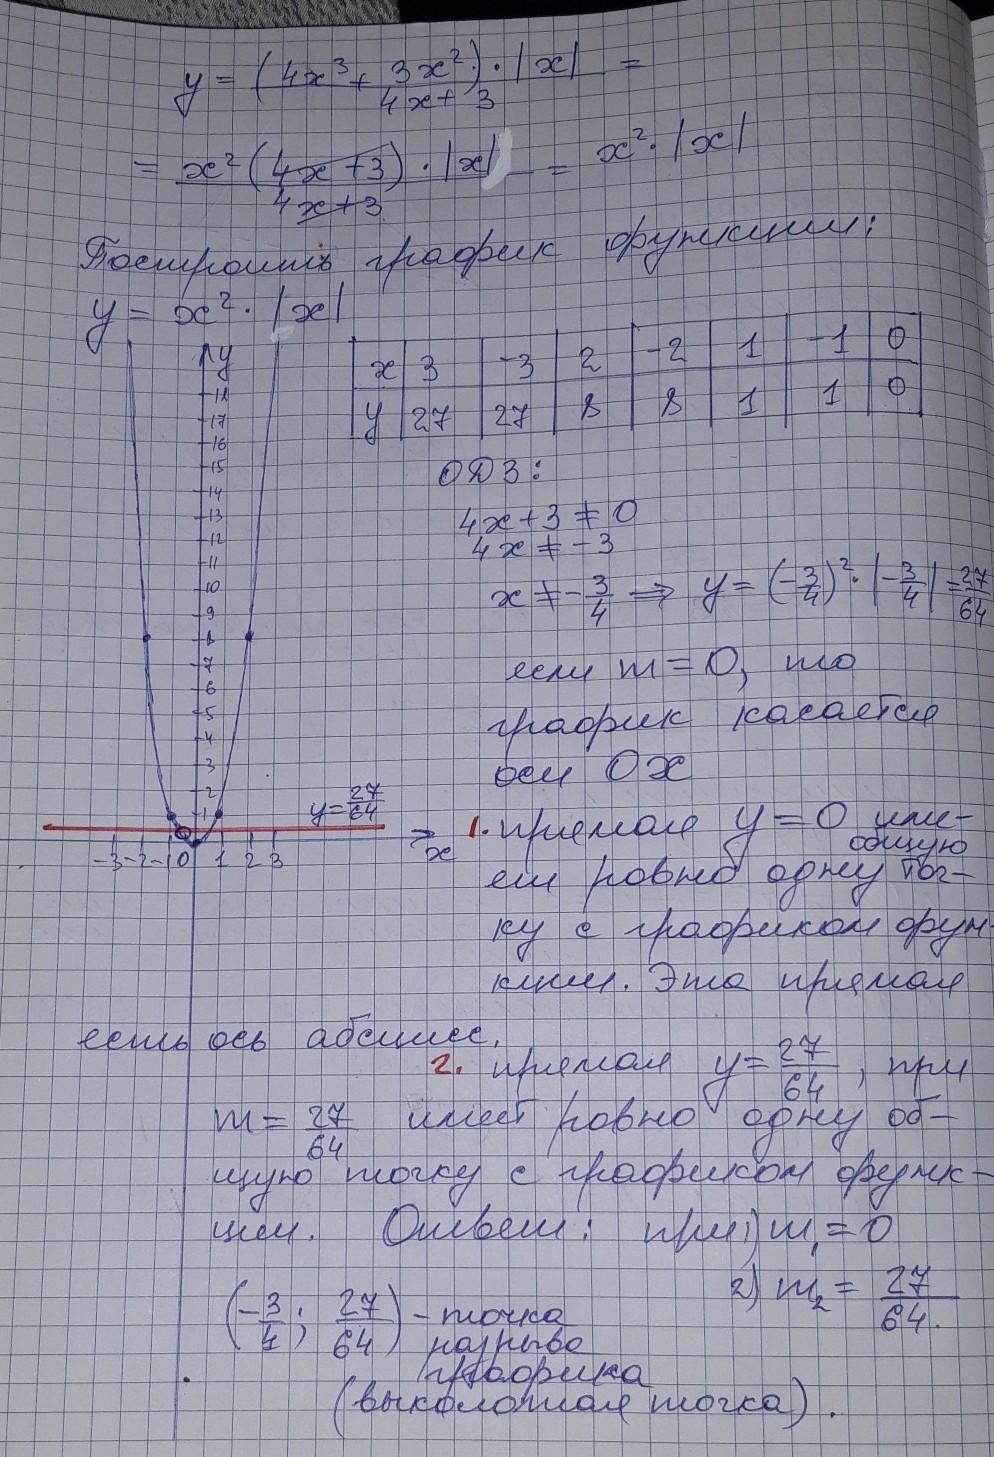 y = (4x³ + 3x²) · |x| =
4x + 3
= x² (4x + 3) · |x| = x² · |x|
4x + 3
Построить график функции:
y = x² · |x|
y
x 3 -3 2 -2 1 -1 0
y 27 27 8 8 1 1 0
18
17
16
15
14
13
12
11
10
9
8
7
6
5
4
3
2
1
ОДЗ:
4x + 3 ≠ 0
4x ≠ -3
x ≠ -3/4 ⇒ y = (-3/4)² · |-3/4| = 27/64
если m = 0, то
график касается
оси Ox
y = 27/64
x
-3 -2 -1 0 1 2 3
1. прямая y = 0 име-
общую
ет ровно одну точ-
ку с графиком функ-
ции. Эта прямая
есть ось абсцисс.
2. прямая y = 27/64, при
m = 27/64 имеет ровно одну об-
щую точку с графиком функ-
ции. Ответ: при 1) m₁ = 0
2) m₂ = 27/64.
(-3/4; 27/64) - точка
разрыва
графика
(выколотая точка).